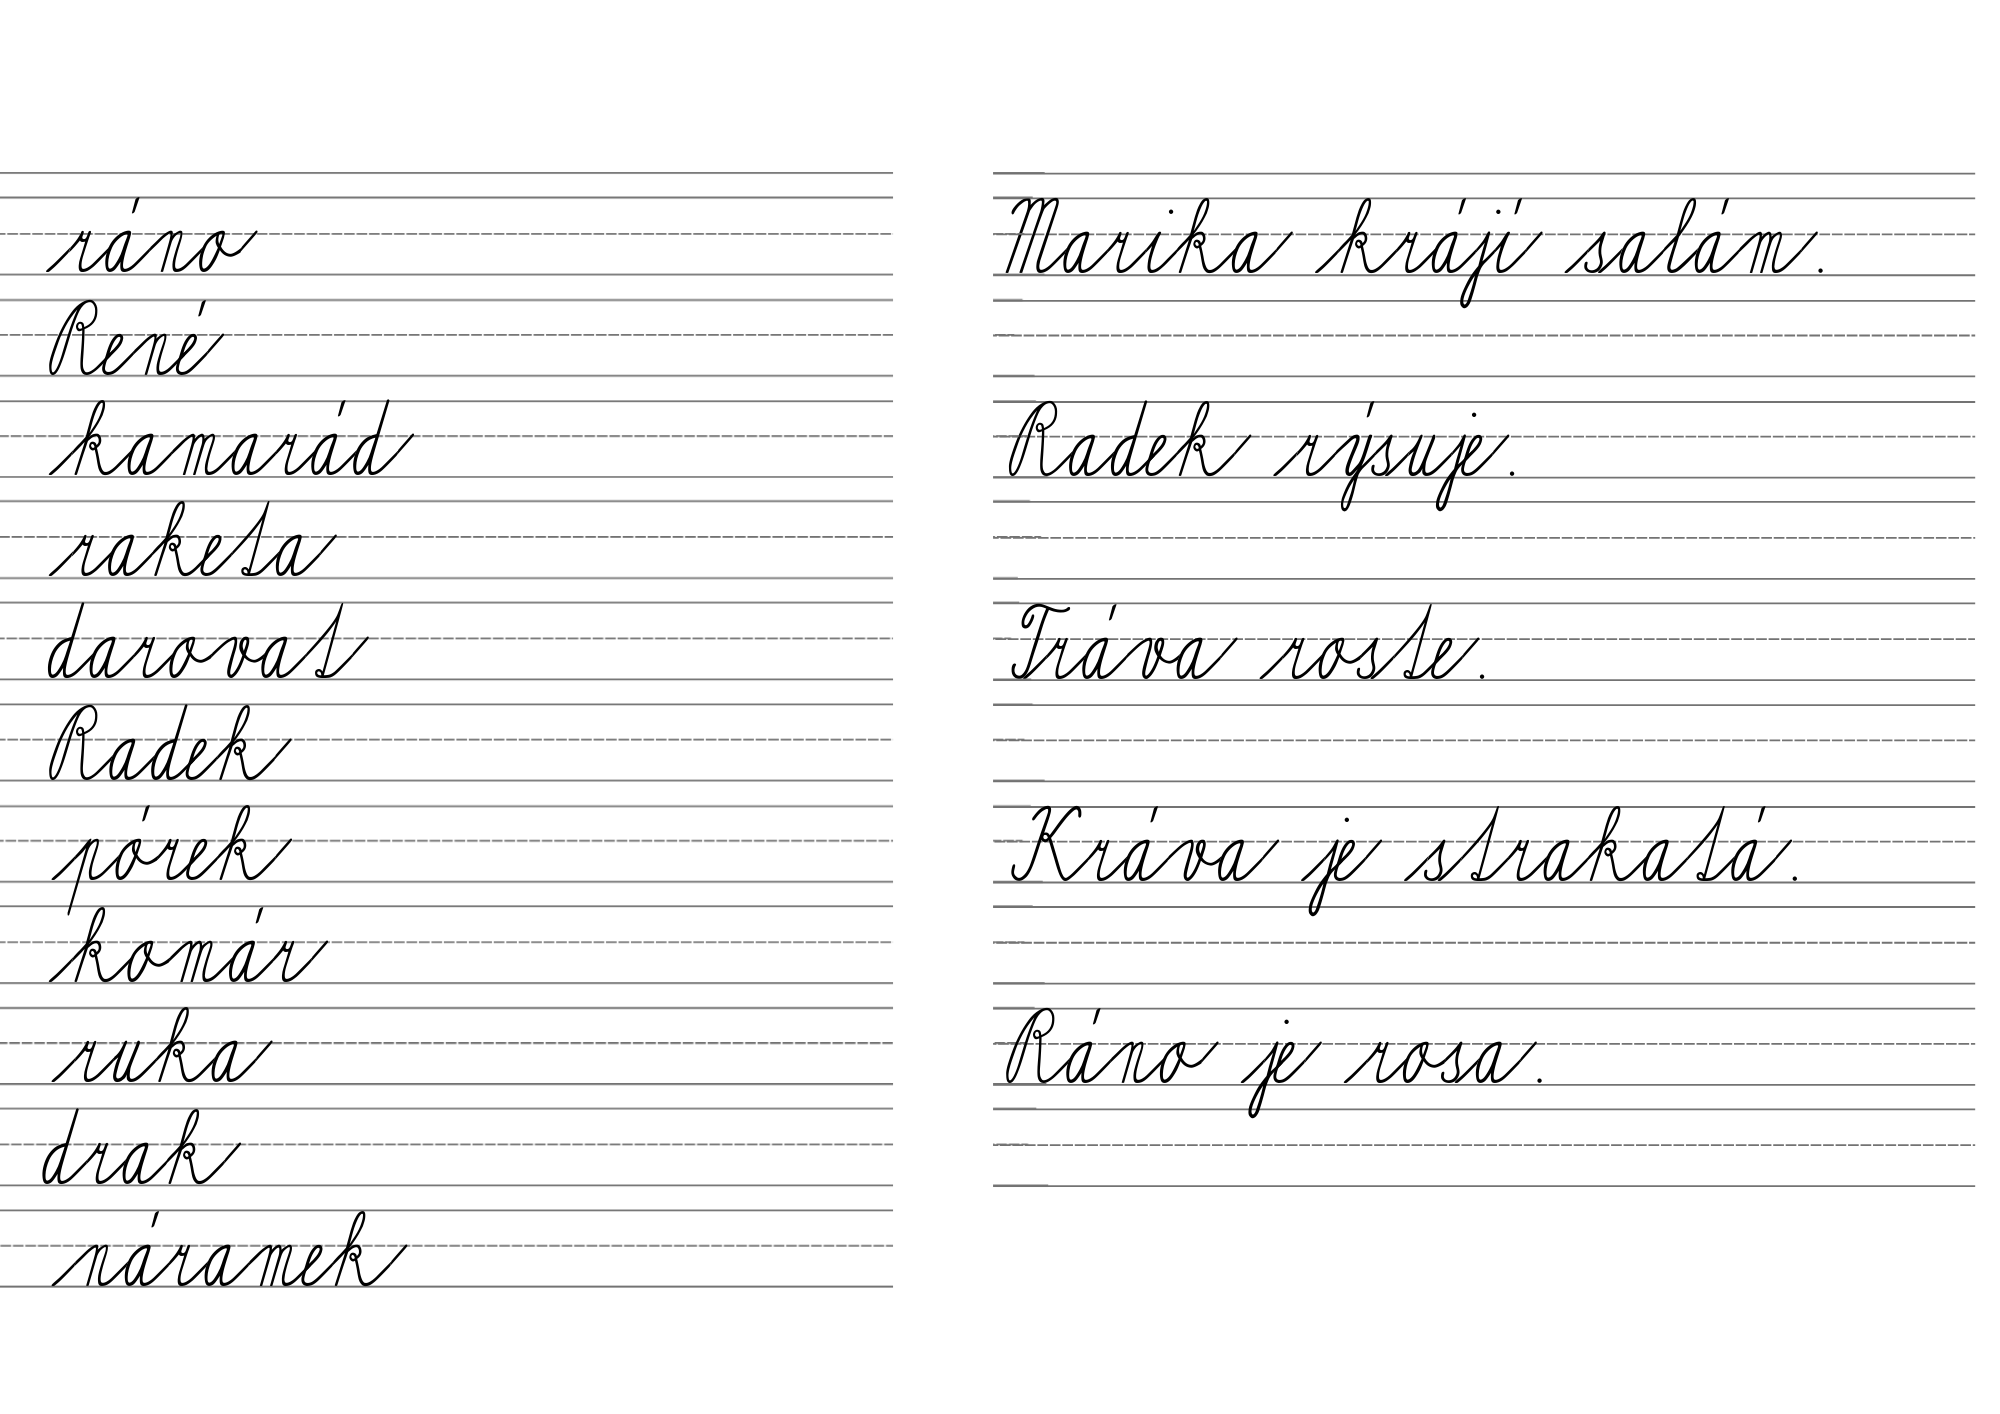 ráno
René
kamarád
raketa
darovat
Radek
pórek
komár
ruka
drak
náramek
Marika krájí salám.
Radek rýsuje.
Tráva roste.
Kráva je strakatá.
Ráno je rosa.